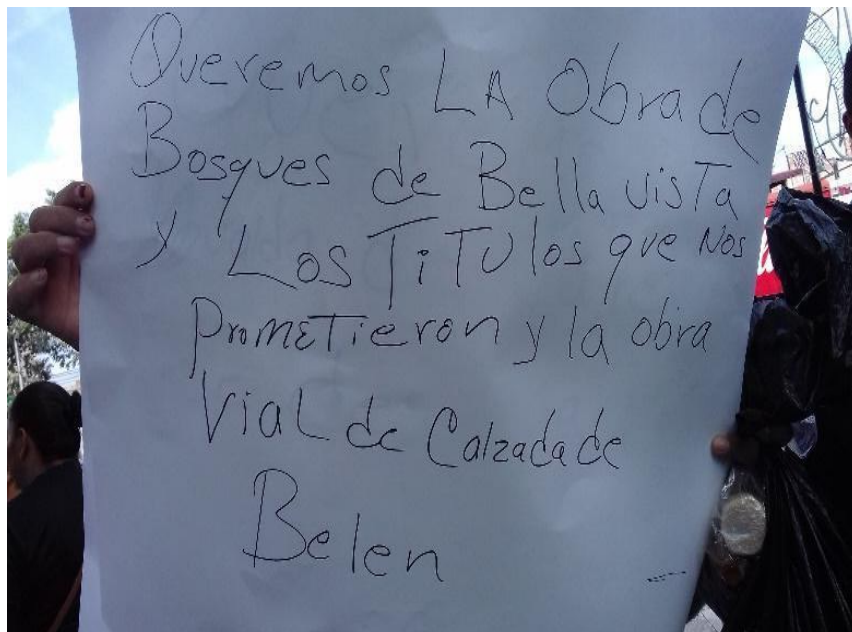 Queremos LA Obra de
Bosques de Bella visTa
y Los TiTUlos que Nos
PromeTieron y la obra
ViaL de Calzada de
Belen